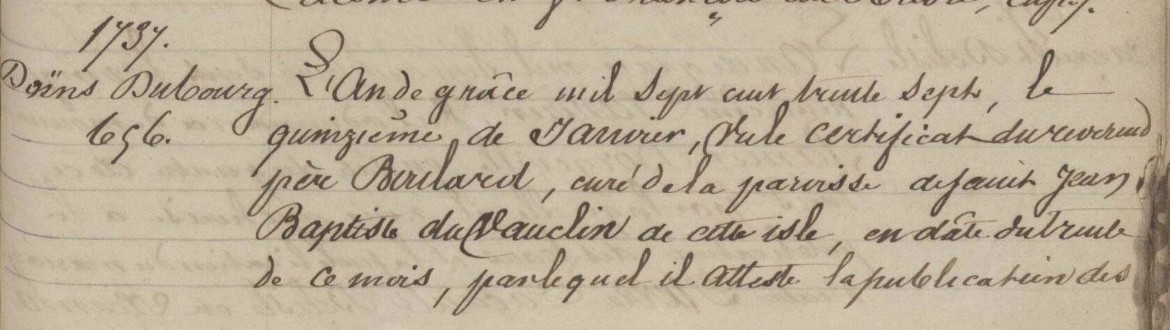 1737.
Doïns Dubourg.
656.
L'An de grâce mil Sept cent trente Sept, le
quinzième de Janvier, Vu le certificat du reverend
père Boulard, curé de la paroisse de saint Jean
Baptiste du Vauclin de cette isle, en dâte du trente
de ce mois, par lequel il atteste la publication des